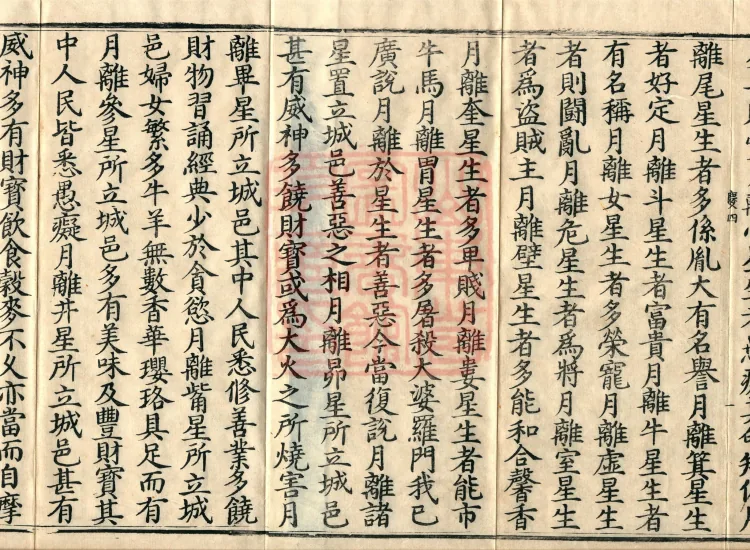 離尾星生者多係胤大有名譽月離箕星生
者好定月離斗星生者富貴月離牛星生者
有名稱月離女星生者多榮寵月離虛星生
者則鬪亂月離危星生者為將月離室星生
者為盜賊主月離壁星生者多能和合馨香
慶四
月離奎星生者多卑賎月離婁星生者能市
牛馬月離胃星生者多屠殺大婆羅門我已
廣說月離於星生者善惡今當復說月離諸
星置立城邑善惡之相月離昴星所立城邑
甚有威神多饒財寶或為大火之所燒害月
離畢星所立城邑其中人民悉修善業多饒
財物習誦經典少於貪慾月離觜星所立城
邑婦女繁多牛羊無數香華瓔珞具足而有
月離參星所立城邑多有美味及豐財寶其
中人民皆悉愚癡月離井星所立城邑甚有
威神多有財寶飲食穀麥不久亦當而自摩